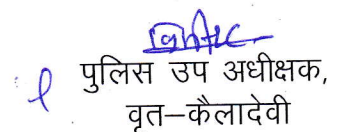 पुलिस उप अधीक्षक,
वृत–कैलादेवी